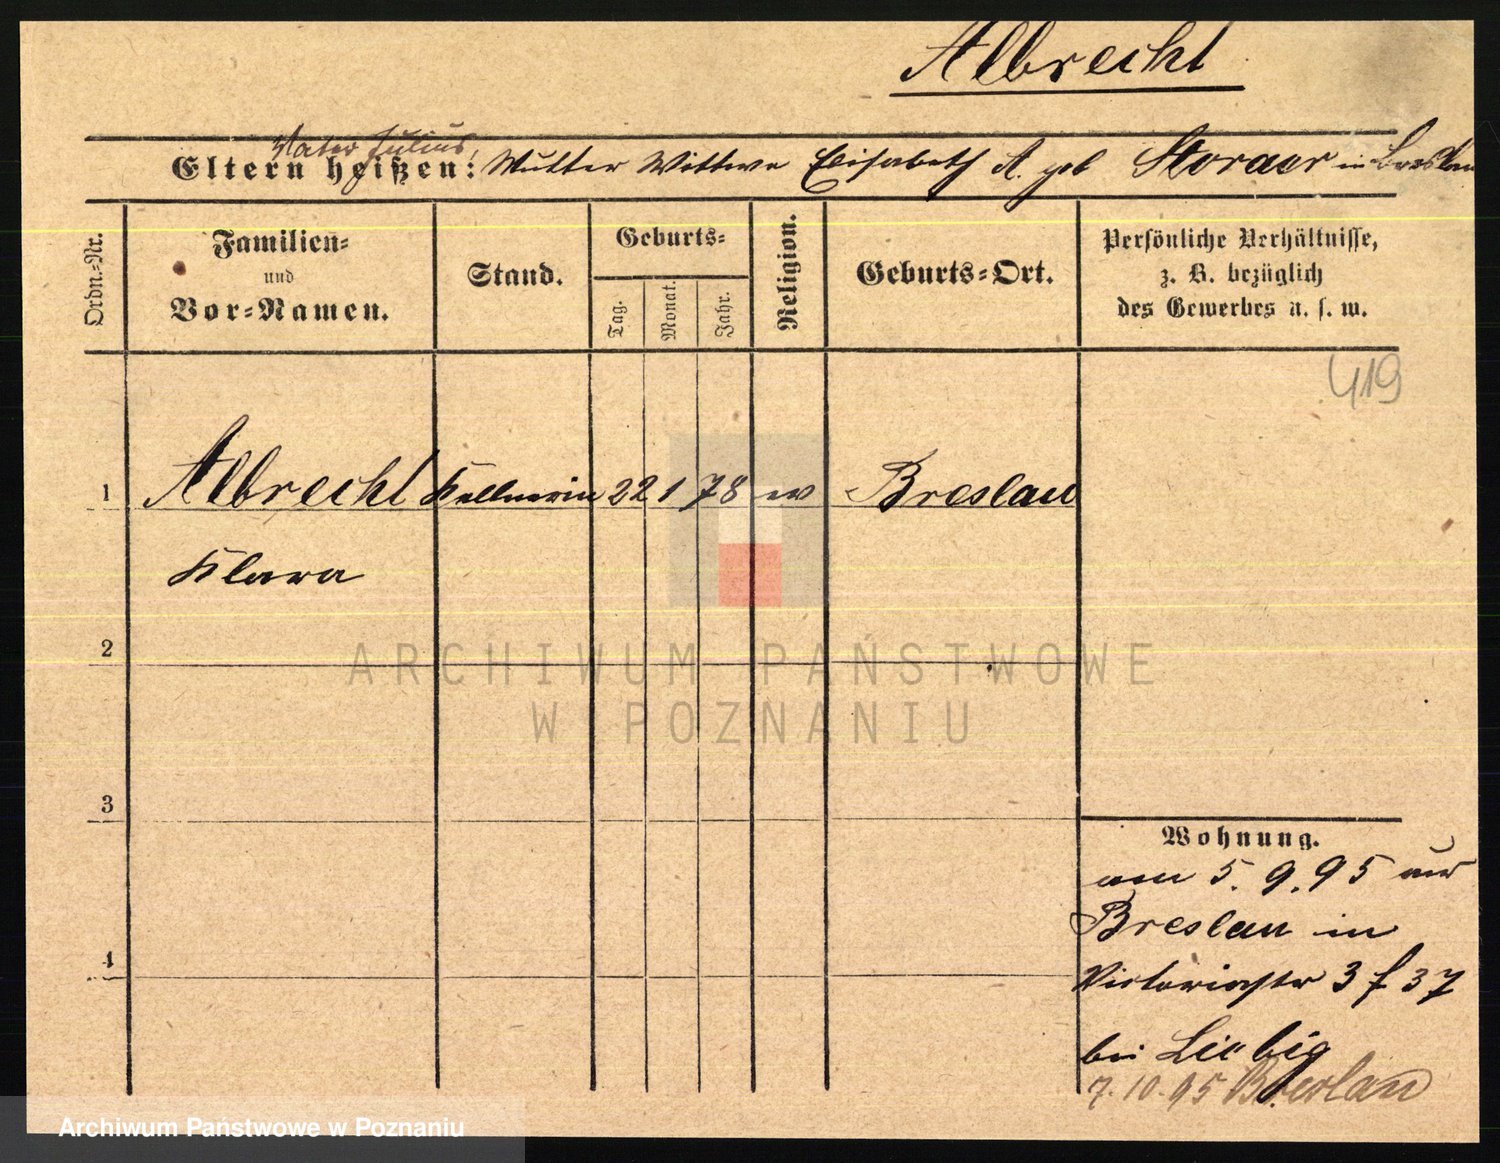 Albrecht
Vater Julius,
Eltern heißen: Mutter Wittwe Elisabeth A. geb in Breslau
Ordn.-Nr.
Familien-
und
Vor-Namen.
Stand.
Geburts-
Tag.
Monat.
Jahr.
Religion.
Geburts-Ort.
Persönliche Verhältnisse,
z. B. bezüglich
des Gewerbes u. s. w.
419
1 Albrecht Kellnerin 22 1 78 ev Breslau
Klara
2
3
4
Wohnung.
am 5. 9. 95 aus
Breslau in
Victoriastr 3 f 37
bei Liebig
7.10.95 Breslau
ARCHIWUM PAŃSTWOWE
W POZNANIU
Archiwum Państwowe w Poznaniu